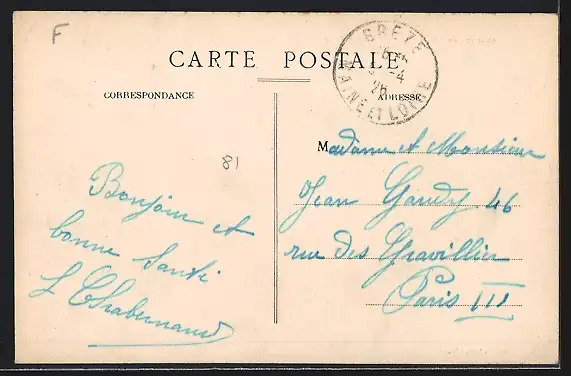 F
CARTE POSTALE
BREZE
-4
MAINE ET LOIRE
CORRESPONDANCE
ADRESSE
81
Bonjour et
bonne Santé
Madame et Monsieur
Jean Gaudy 46
rue des Gravillier
Paris III